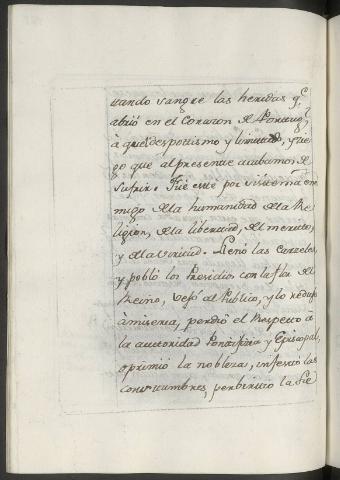 rando sangre las heridas q.e
abrió en el Corazon de Portug.l
à aquel despotismo y
go que al presente acabamos de
Sufrir. Fué este por sistema ene
migo de la humanidad de la Re
ligion, de la libertad, del merito,
y de la virtud. Llenó las Carzeles,
y pobló los Presidios con la flor del
Reino, vejó al Publico, y lo redujo
à miseria, perdió el Respecto à
la autoridad Pontificia y Episcopal,
oprimió la nobleza, infestó las
Costumbres, pervirtió la Le